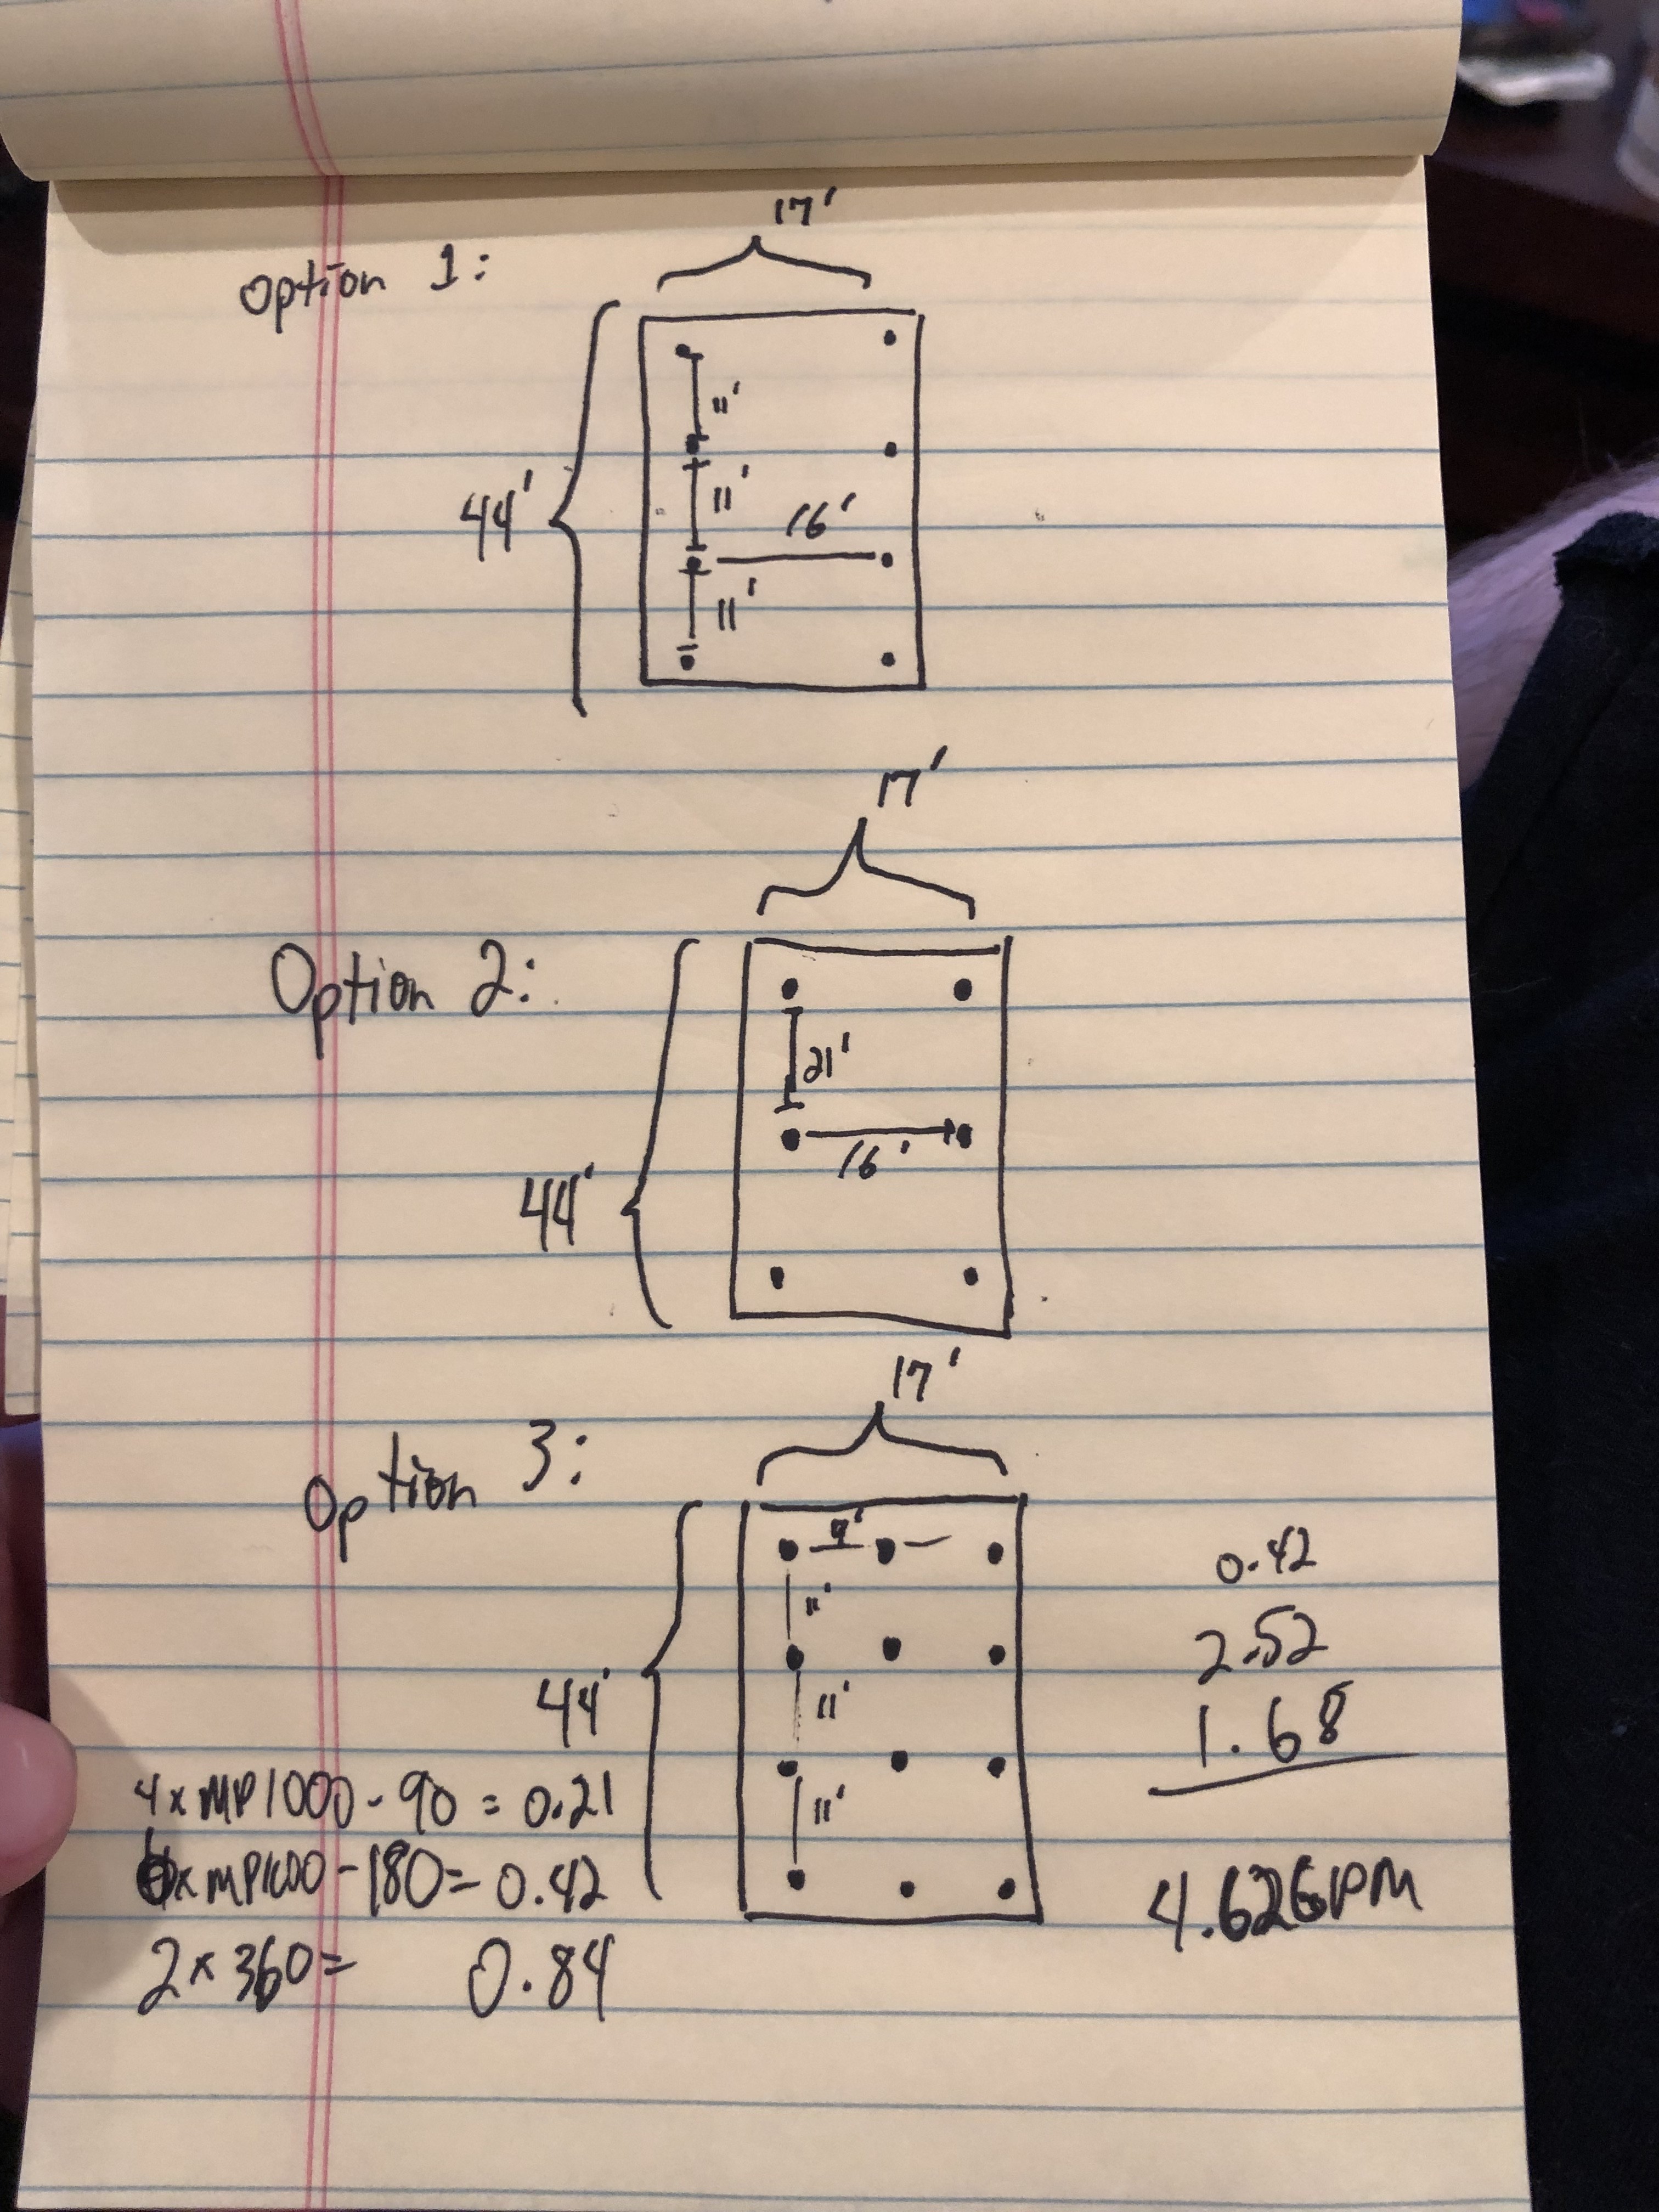 17'
Option 1:
11'
44'
11'
16'
11'
17'
Option 2:
21'
16'
44'
17'
Option 3:
9'
11'
44'
11'
11'
0.42
2.52
1.68
4.62GPM
4x MP1000-90 = 0.21
6x MP1000-180= 0.42
2x 360= 0.84